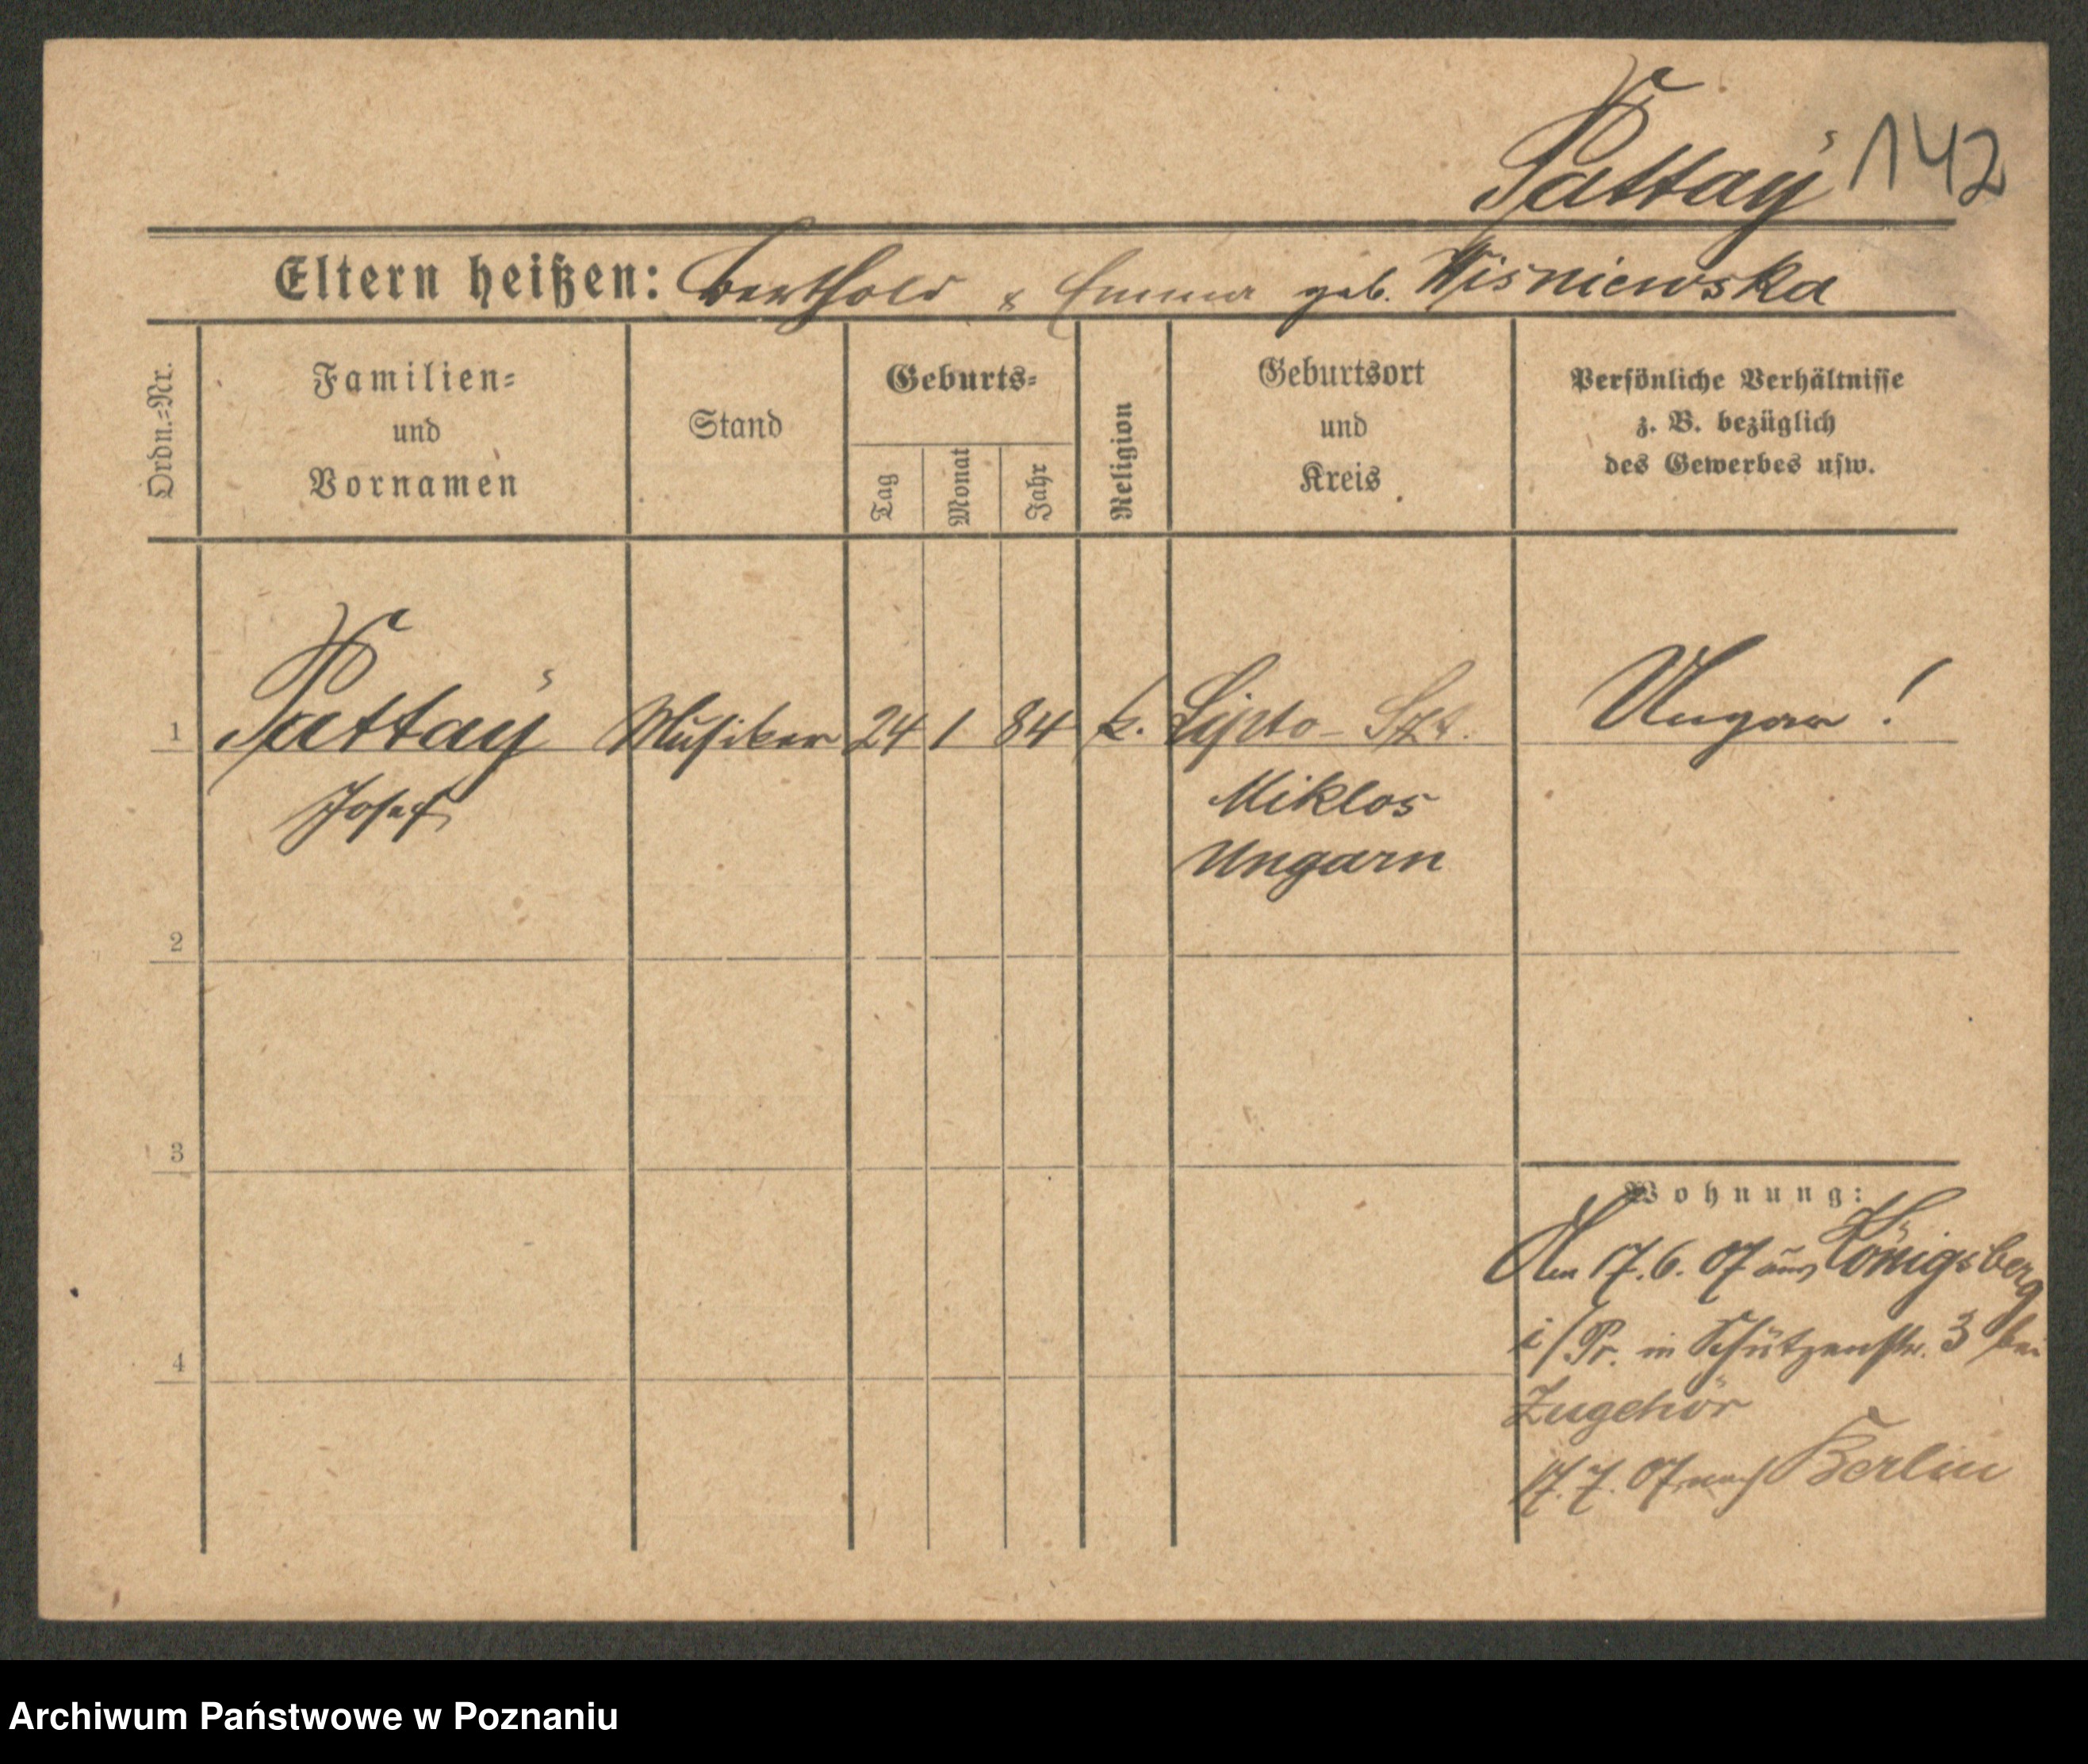 Pattay 142
Eltern heißen: Berthold & Emma geb. Wisniewska
Ordn.=Nr.
Familien=
und
Vornamen
Stand
Geburts=
Tag
Monat
Jahr
Religion
Geburtsort
und
Kreis
Persönliche Verhältnisse
z. B. bezüglich
des Gewerbes usw.
1 Pattay Musiker 24 1 84 k. Lipto- Szt. Ungar !
Josef Miklos
Ungarn
2
3
Wohnung:
Am 17.6.07 aus Königsberg
i/Pr. in Schützenstr. 3 bei
4
Zugehör
17.7.07 nach Berlin
Archiwum Państwowe w Poznaniu